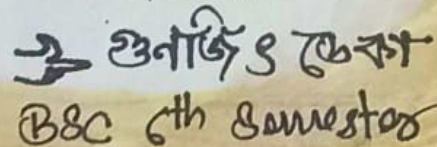 গুনজিৎ ডেকা
BSC 6th Semester